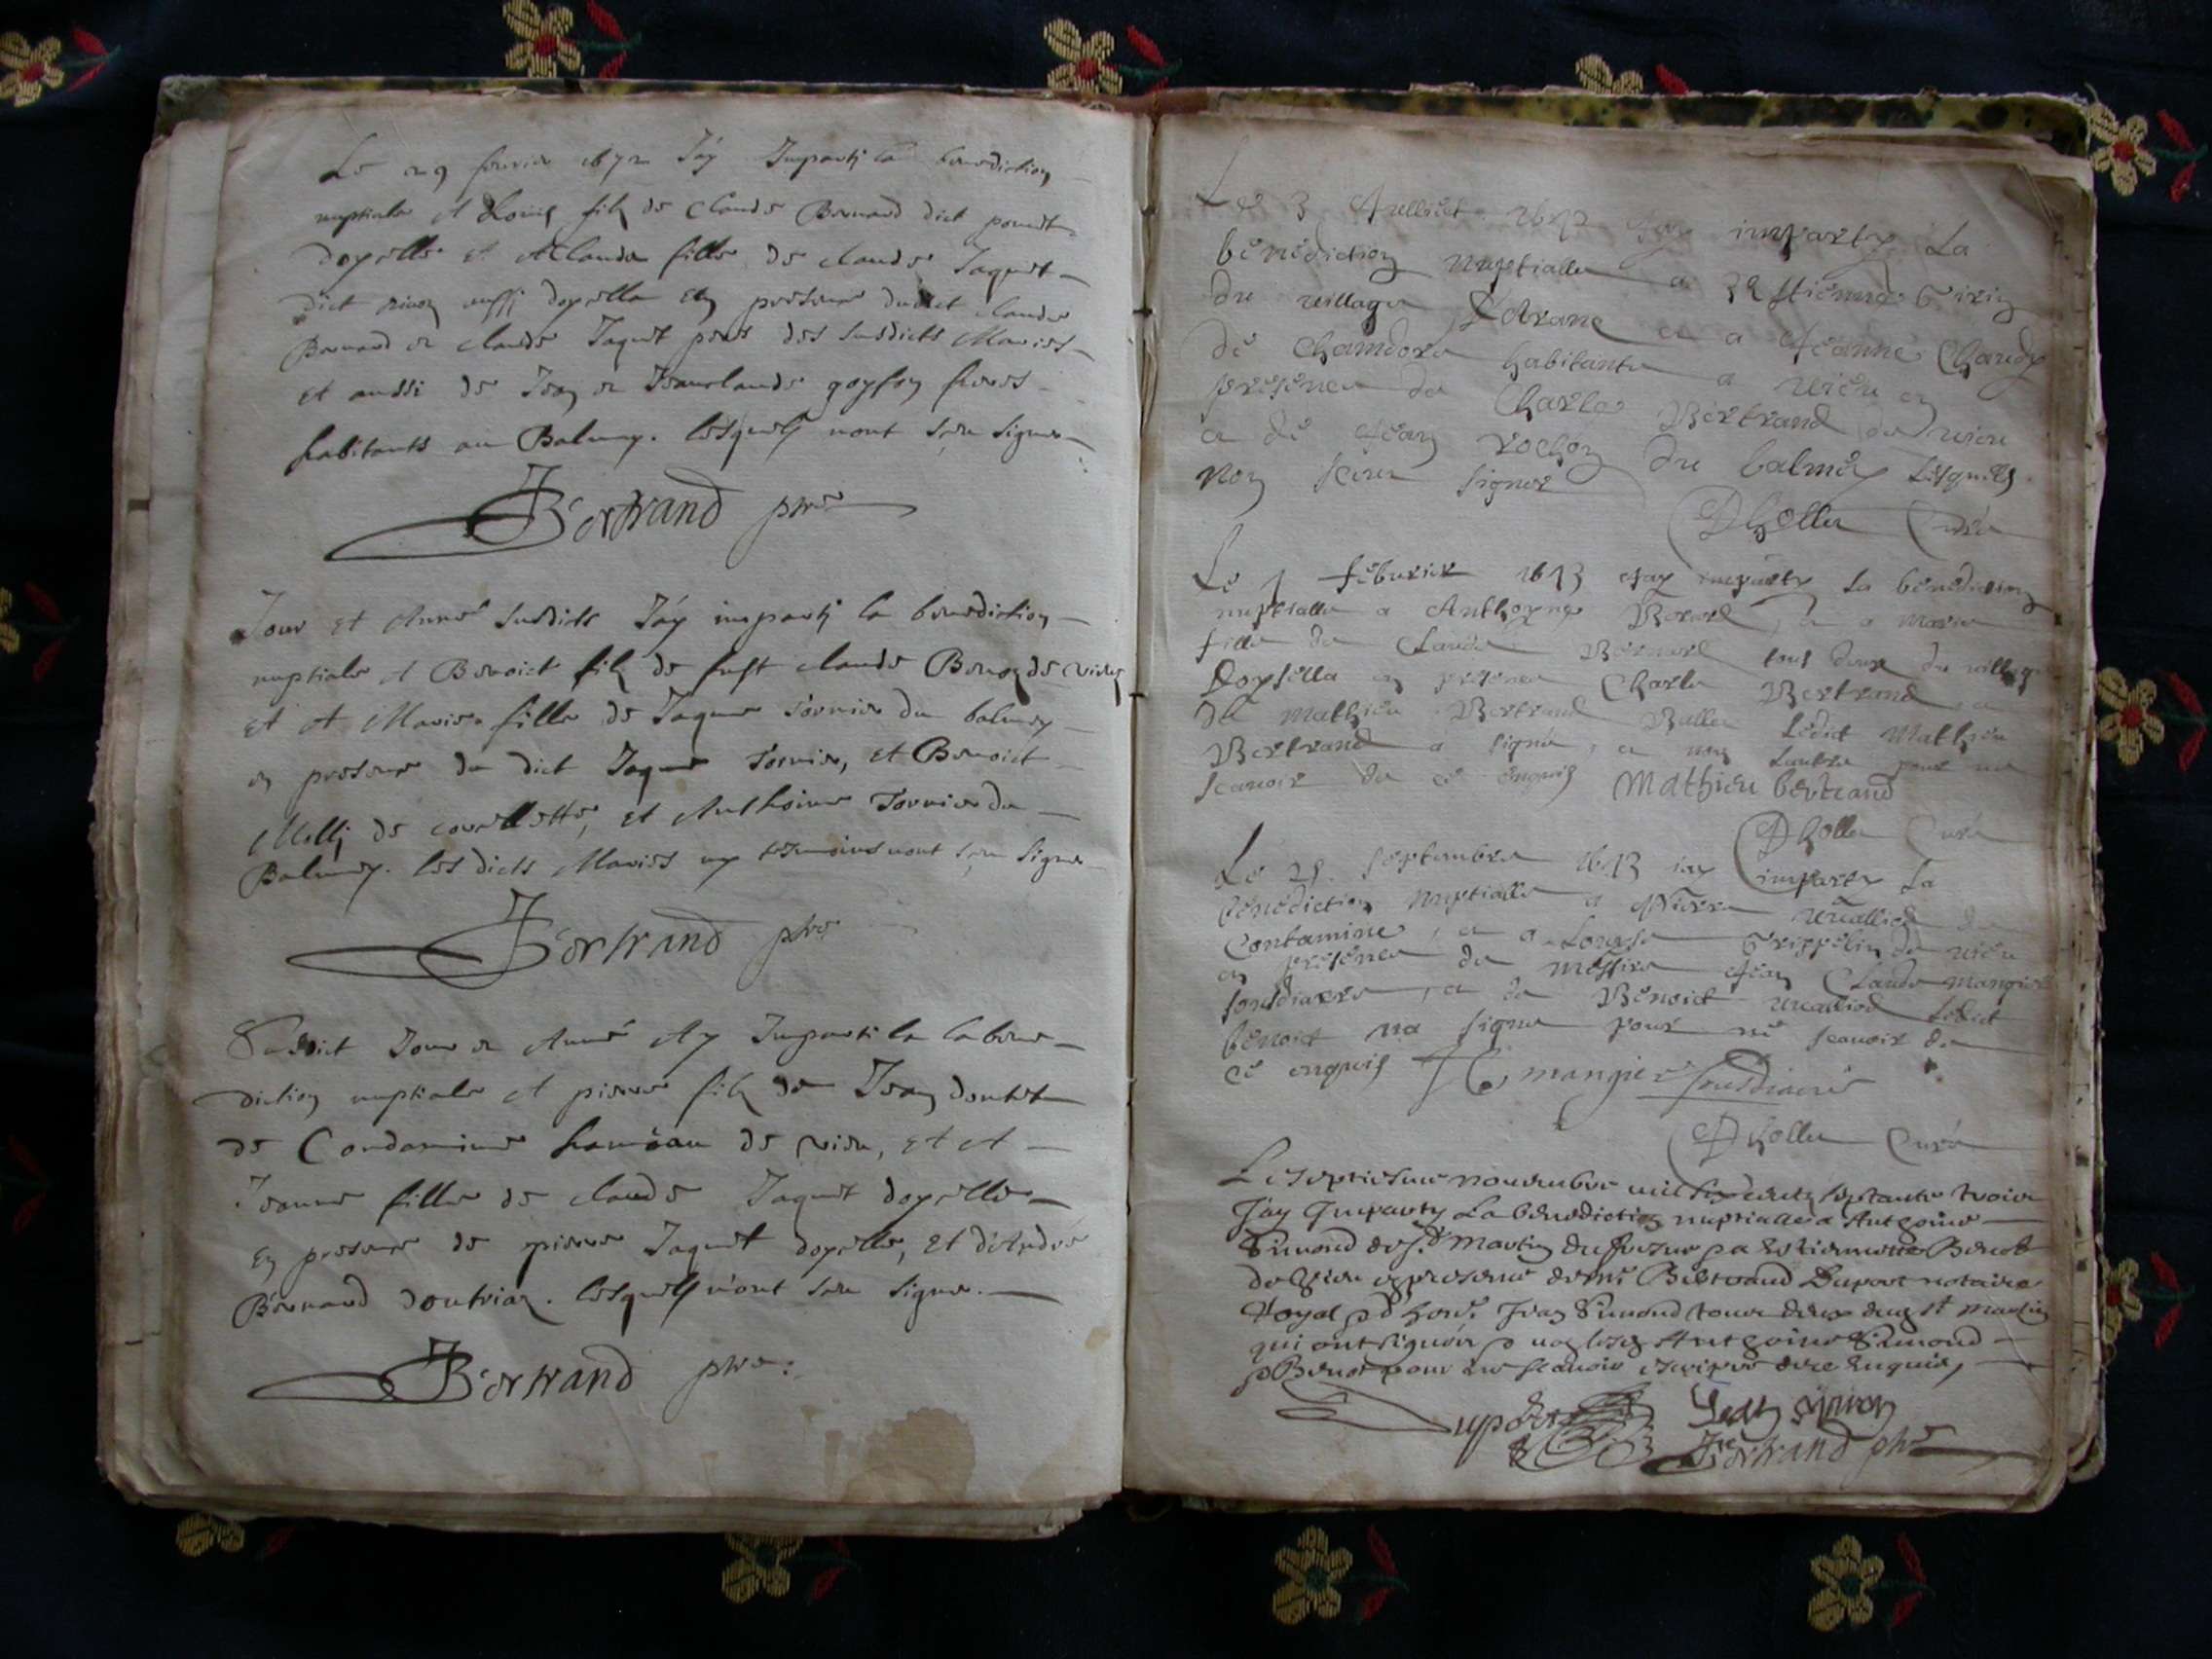 Le 29 febvrier 1672 J'ay Imparti la benediction
nuptiale A Louis filz de Claude Bernard dict
doyselle et A Clauda fille de claude Jaquet
dict aussi doyselle En presence dudict claude
Bernard et claude Jaquet peres des susdicts Mariés
Et aussi de Jean et Jeanclaude goyffon freres
habitants au Balmey. lesquels n'ont sceu signer
JBertrand pbre
Jour et Anné susdicts J'ay imparti la benediction
nuptiale A Benoict filz de fust claude de vieu
et A Marie fille de Jaques Tornier du balmey
en presence du dict Jaques Tornier, et Benoict
de et Anthoine Tornier du
Balmey. lesdicts Mariés ny tesmoins n'ont sceu signer
JBertrand pbre
Susdict Jour et Anné Ay Imparti la la bene-
diction nuptiale A pierre filz de Jean
de Condamine hameau de vieu, et A
Jeanne fille de claude Jaquet doyselle
En presence de pierre Jaquet doyselle, Et d'Andre
Bernard d'outriaz. lesquels n'ont sceu signer.
JBertrand pbre:
Le 3 Juellict 1672 Jay imparty La
bénédiction nuptialle a Estienne
du village D'Arane et a Jeanne Chandy
de Chamdore habitante a vieu en
présence de Charles Bertrand de vieu
et de Jean rochon du balmey Lesquels
non sceu signer
Dholle Curé
Le febvrier 1673 Jay imparty La bénédiction
nuptialle a Anthoyne et a marie
fille de Claude Bernard tous deux du village
Doysella en présence Charle Bertrand et
de Mathieu Bertrand Ledict Mathieu
Bertrand a signé, et non Lautre pour ne
scavoir de ce enquis Mathieu bertrand
Dholle Curé
Le septembre 1673 iay imparty La
bénédiction nuptialle a Pierre de
Contamine, et a Louyse Trippélin de vieu
en présence de messire Jean Claude mangier
sousdiacre, et de Benoict Ledict
benoict na signé pour ne scavoir de
ce enquis mangier sousdiacre
Dholle Curé
Le septiesme novembre mil six centz septante trois
J'ay Imparty La benediction nuptialle a Anthoine
Simond de St Martin du fresne & a Estiennette Benot
de Vieu en presence de me Bertrand Dupont notaire
Royal & d'hon. Jean Simond tous deux dudt St Martin
qui ont signéz & non lesdz Anthoine Simond
& Benot pour ne scavoir escripre de ce Enquis
Dupont Jean Simon
JBertrand pbre